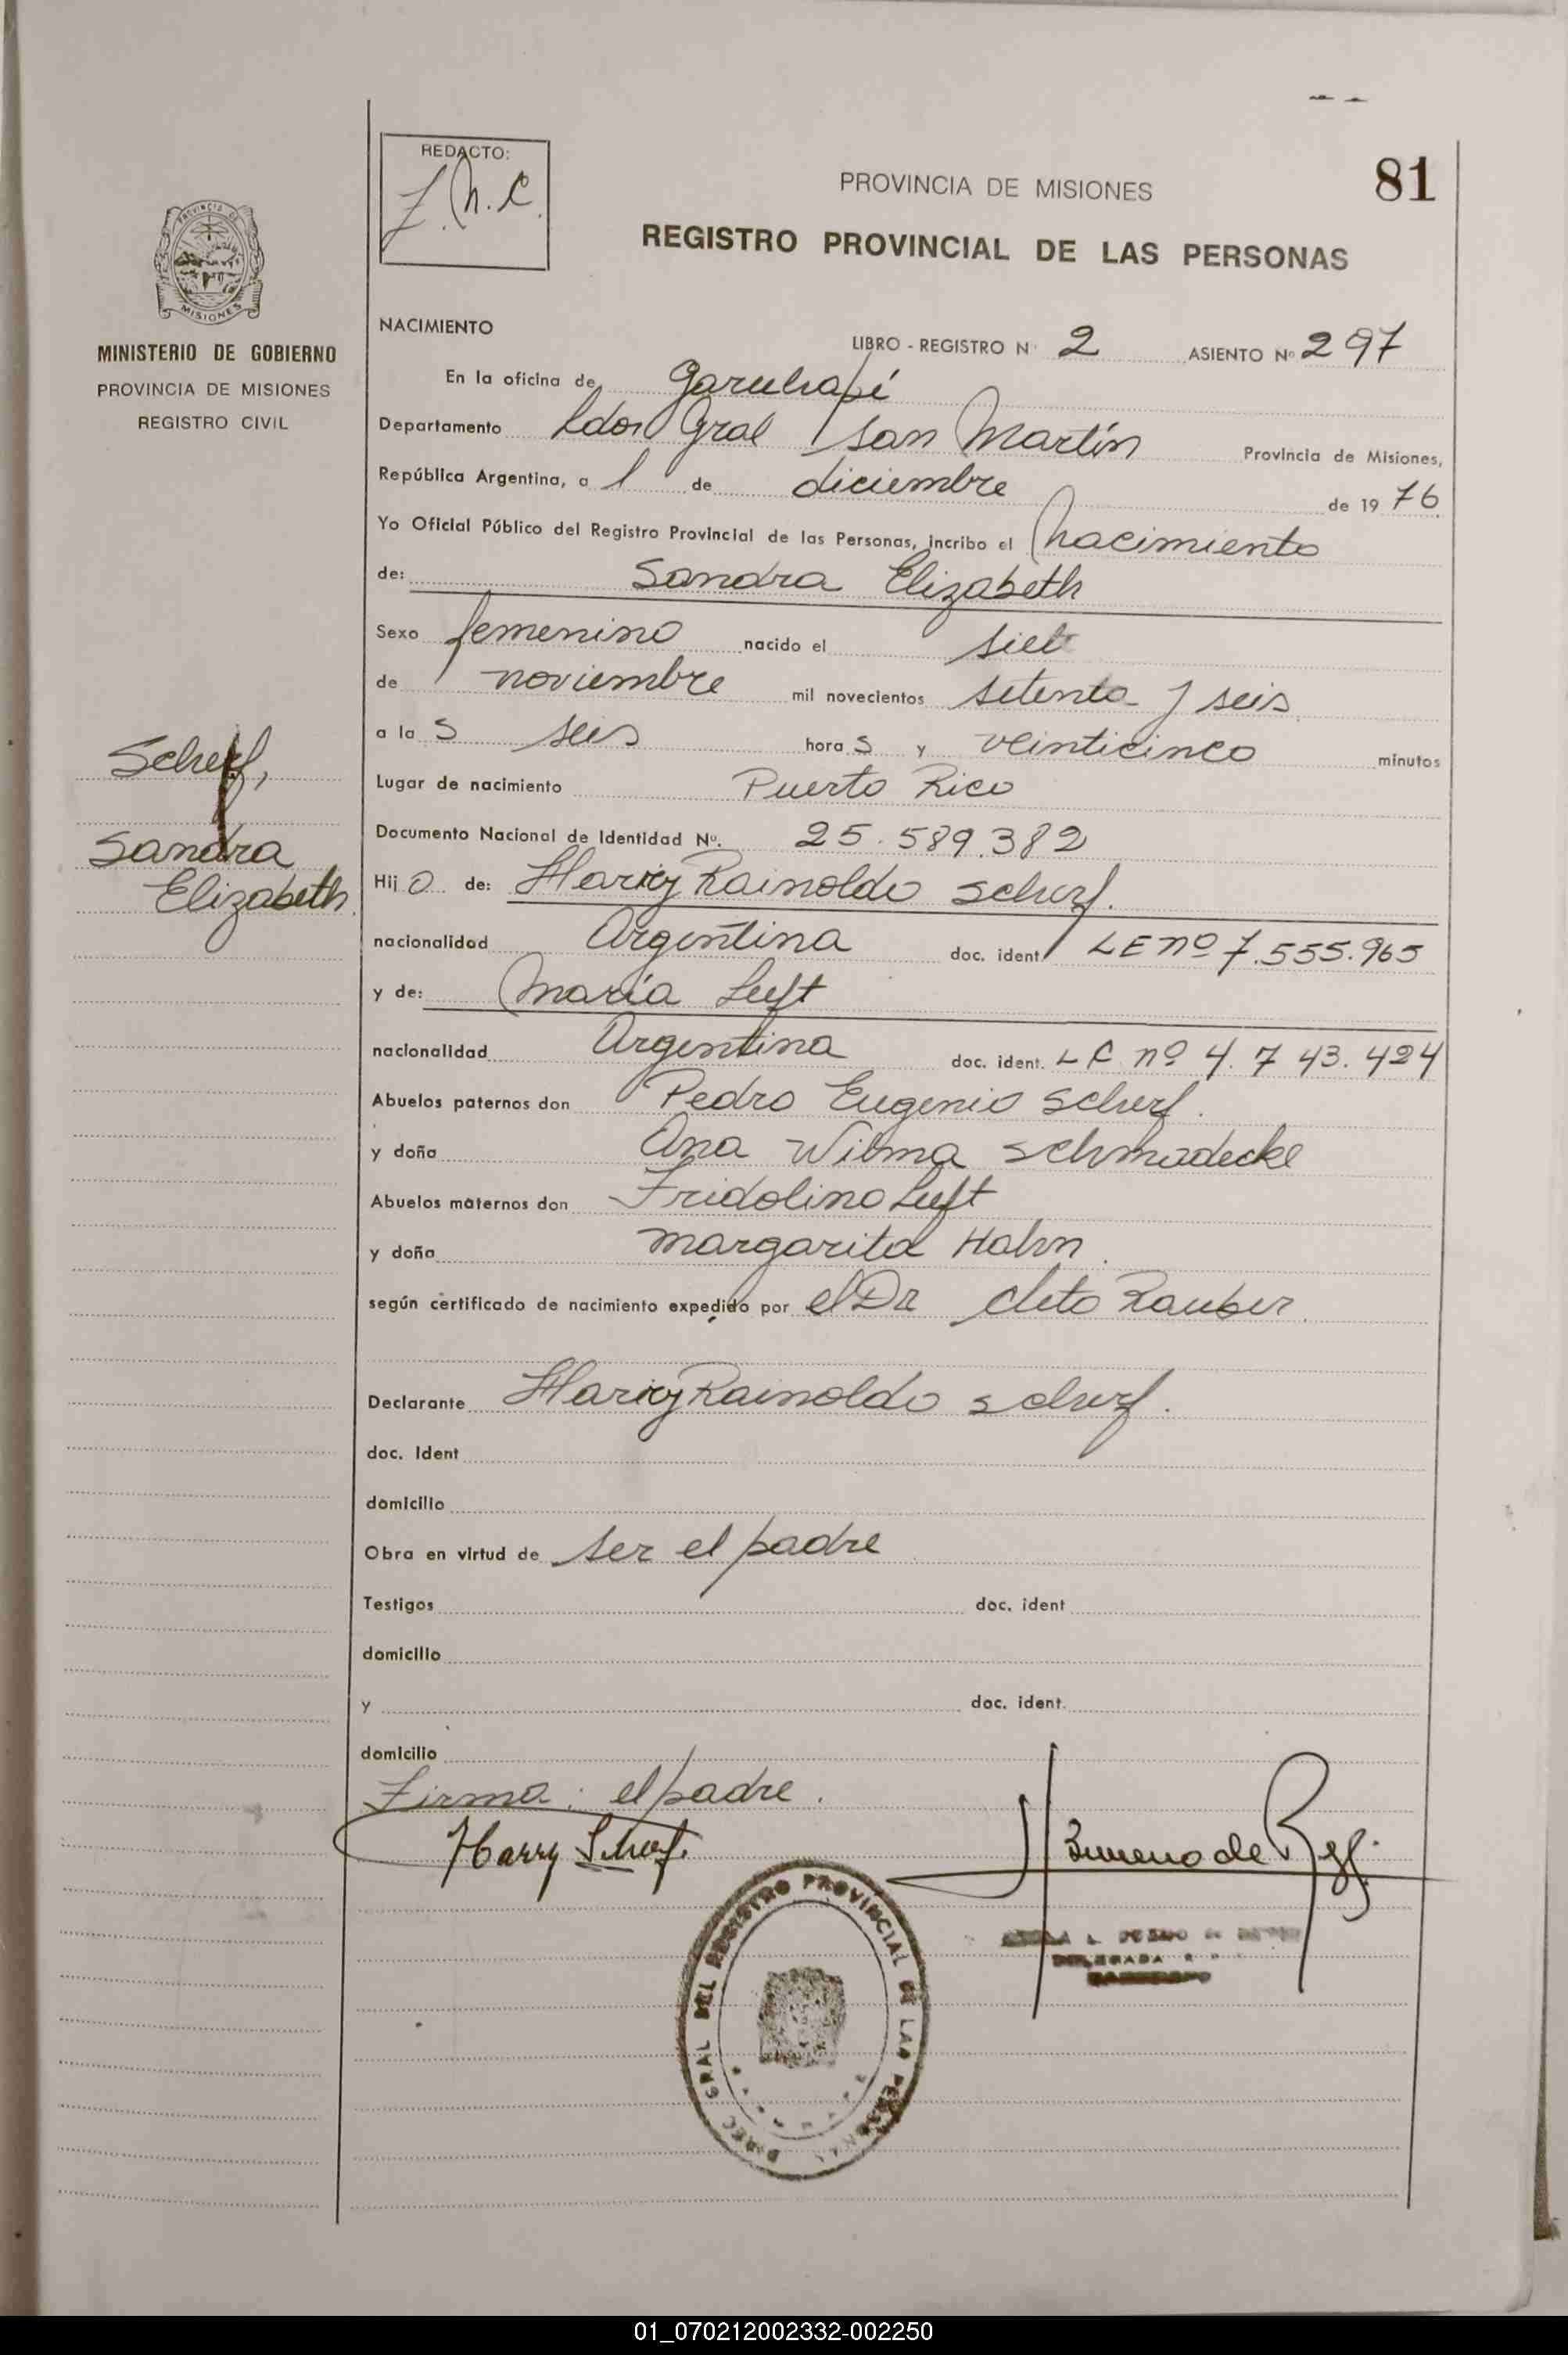 81
REDACTO:
J.N.C.
PROVINCIA DE MISIONES
REGISTRO PROVINCIAL DE LAS PERSONAS
MISIONES
MINISTERIO DE GOBIERNO
PROVINCIA DE MISIONES
REGISTRO CIVIL
Scherf,
Sandra
Elizabeth
NACIMIENTO
LIBRO - REGISTRO N° 2 ASIENTO Nº 297
En la oficina de Garuhapé
Departamento Ldor Gral San Martín Provincia de Misiones,
República Argentina, a 1 de diciembre de 1976
Yo Oficial Público del Registro Provincial de las Personas, incribo el nacimiento
de: Sandra Elizabeth
Sexo femenino nacido el siete
de noviembre mil novecientos setenta y seis
a la s seis hora s y veinticinco minutos
Lugar de nacimiento Puerto Rico
Documento Nacional de Identidad Nº. 25.589.382
Hij a de: Harry Rainoldo Scherf.
nacionalidad Argentina doc. ident LE nº 7.555.965
y de: María Luft
nacionalidad Argentina doc. ident. LC nº 4.743.424
Abuelos paternos don Pedro Eugenio Scherf.
y doña Ana Wilma Schmadecke
Abuelos maternos don Fridolino Luft
y doña Margarita Hahn
según certificado de nacimiento expedido por el Dr Cleto Rauber.
Declarante Harry Rainoldo Scherf.
doc. Ident
domicilio
Obra en virtud de ser el padre
Testigos doc. ident
domicilio
y doc. ident.
domicilio
Firma: el padre.
Harry Scherf.
DIREC GRAL DEL REGISTRO PROVINCIAL DE LAS PERSONAS
DELEGADA
01_070212002332-002250